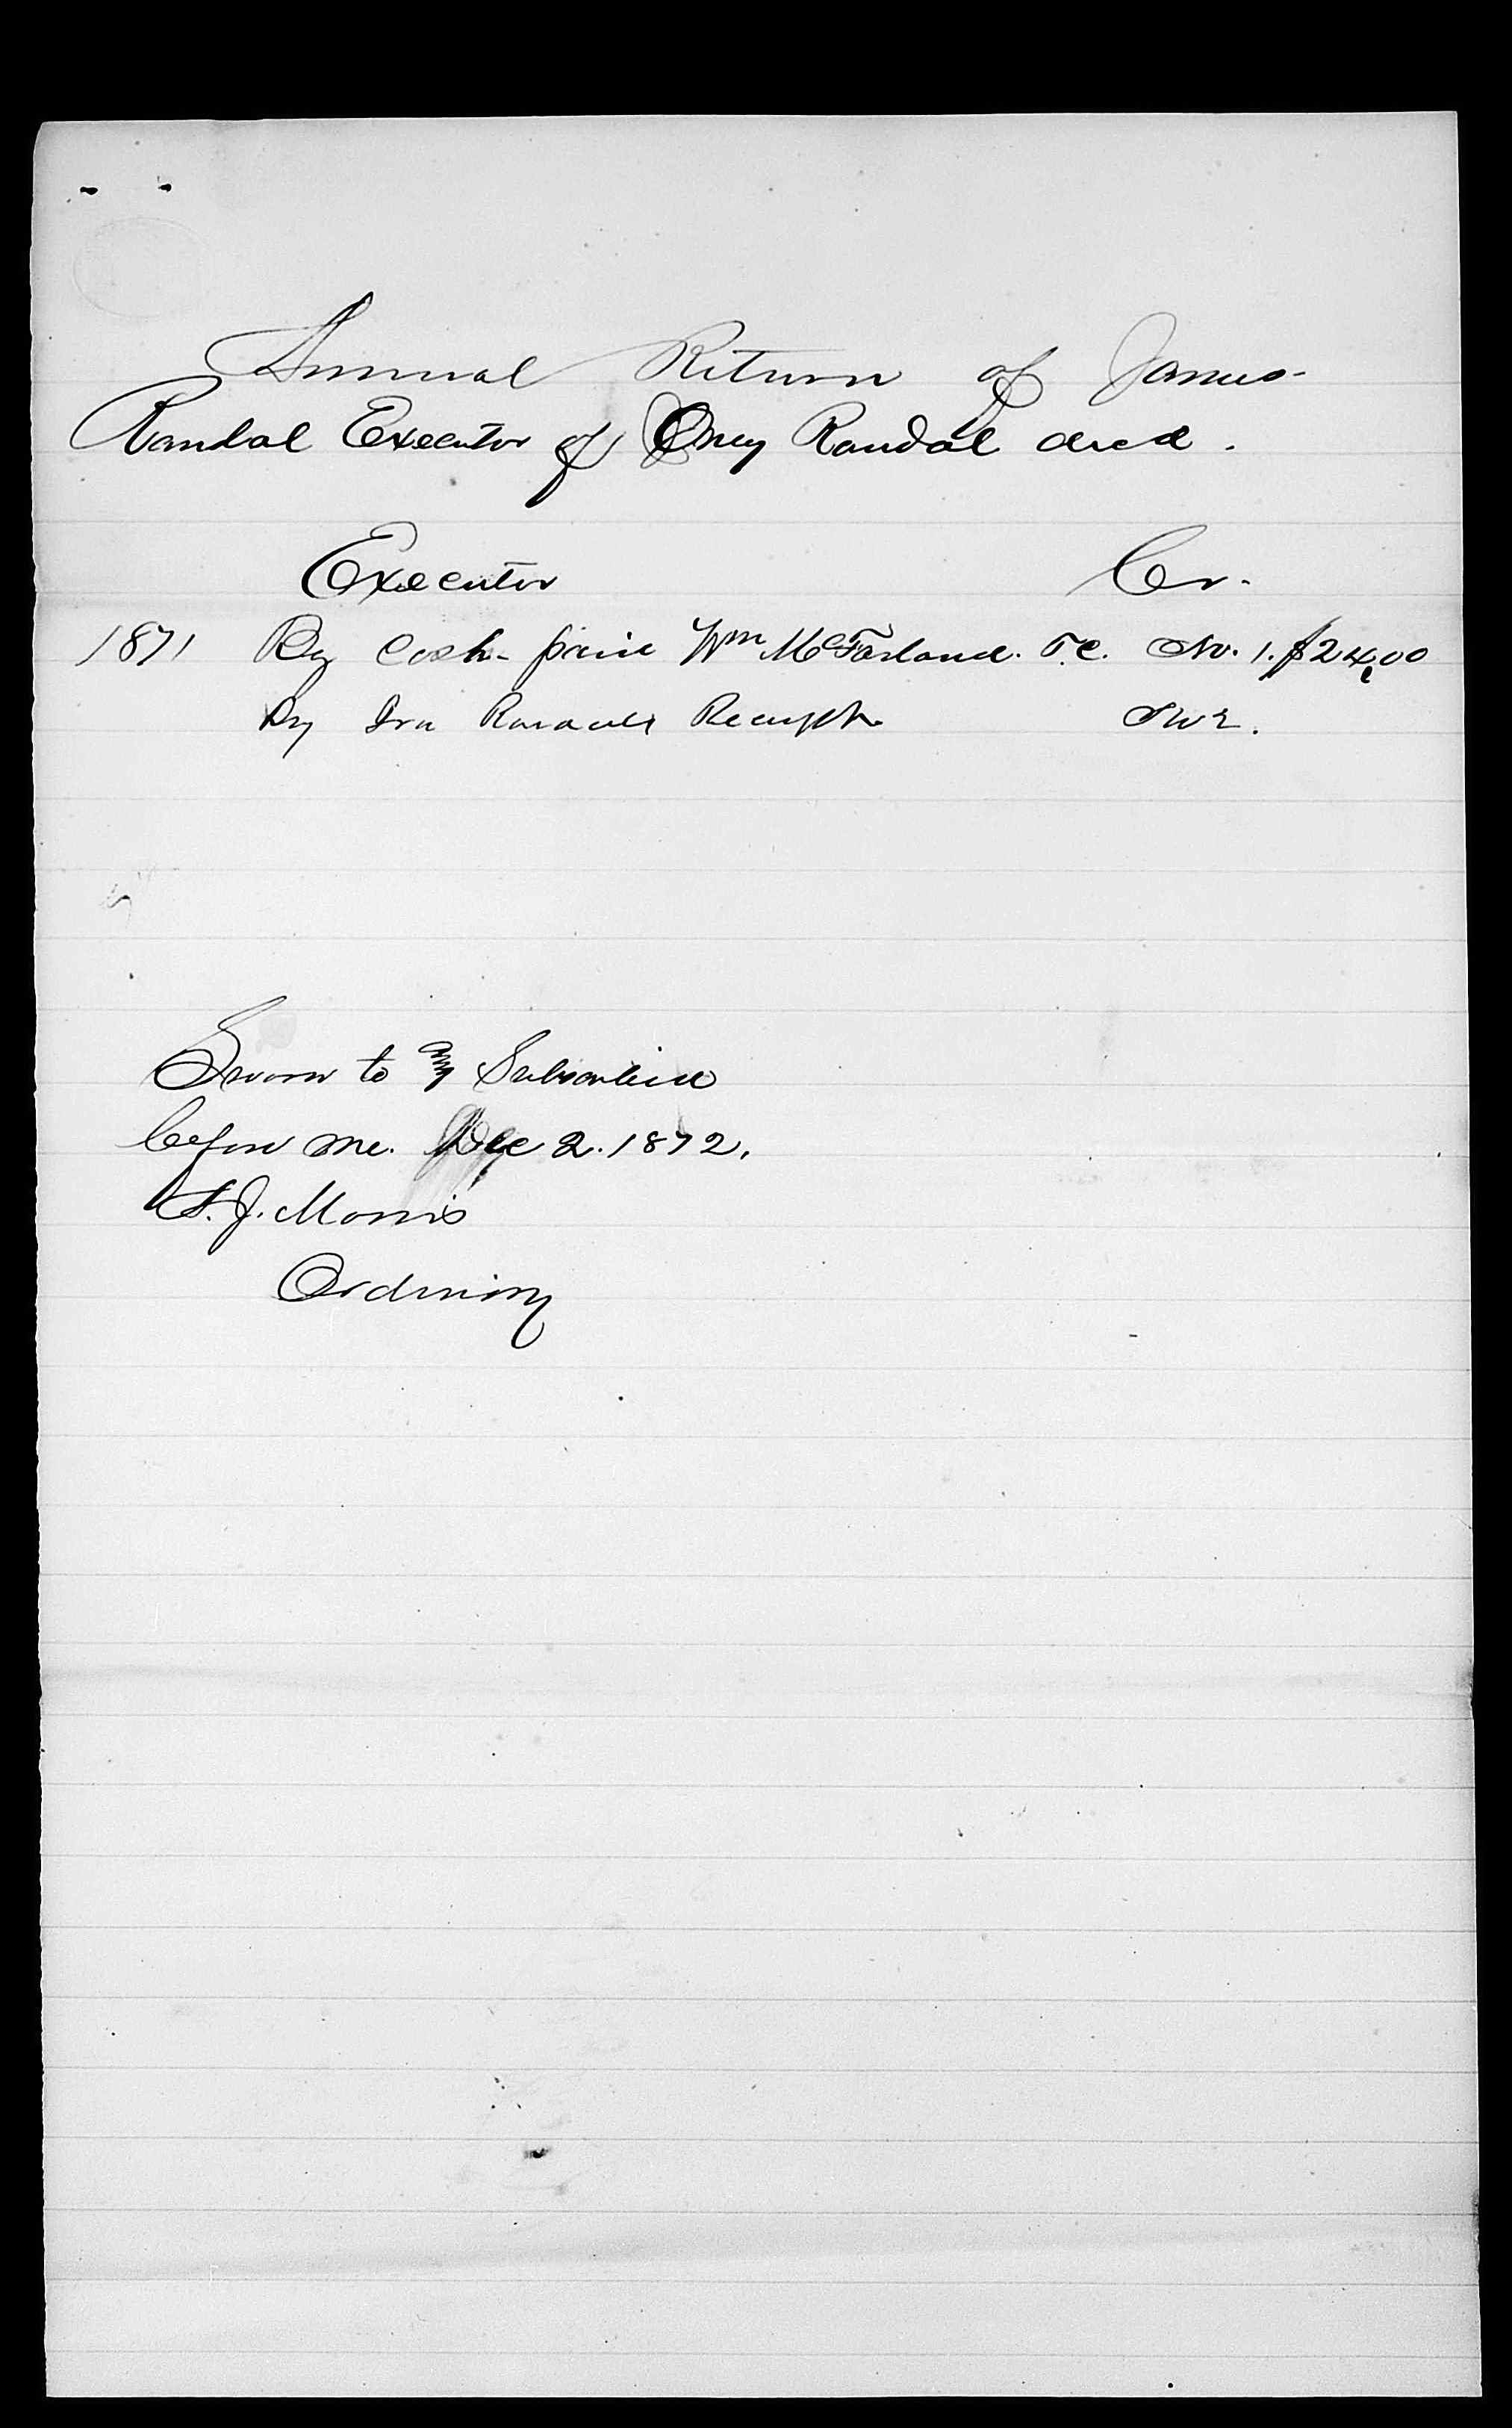 Annual Return of James
Randal Executor of Oney Randal decd.
Executor Cr.
1871 By Cash paid Wm McFarland. T.C. No. 1. $24,00
By Ira Randals Receipt No 2.
Sworn to & Subscribed
before me. Dec 2. 1872.
S. J. Morris
Ordinary